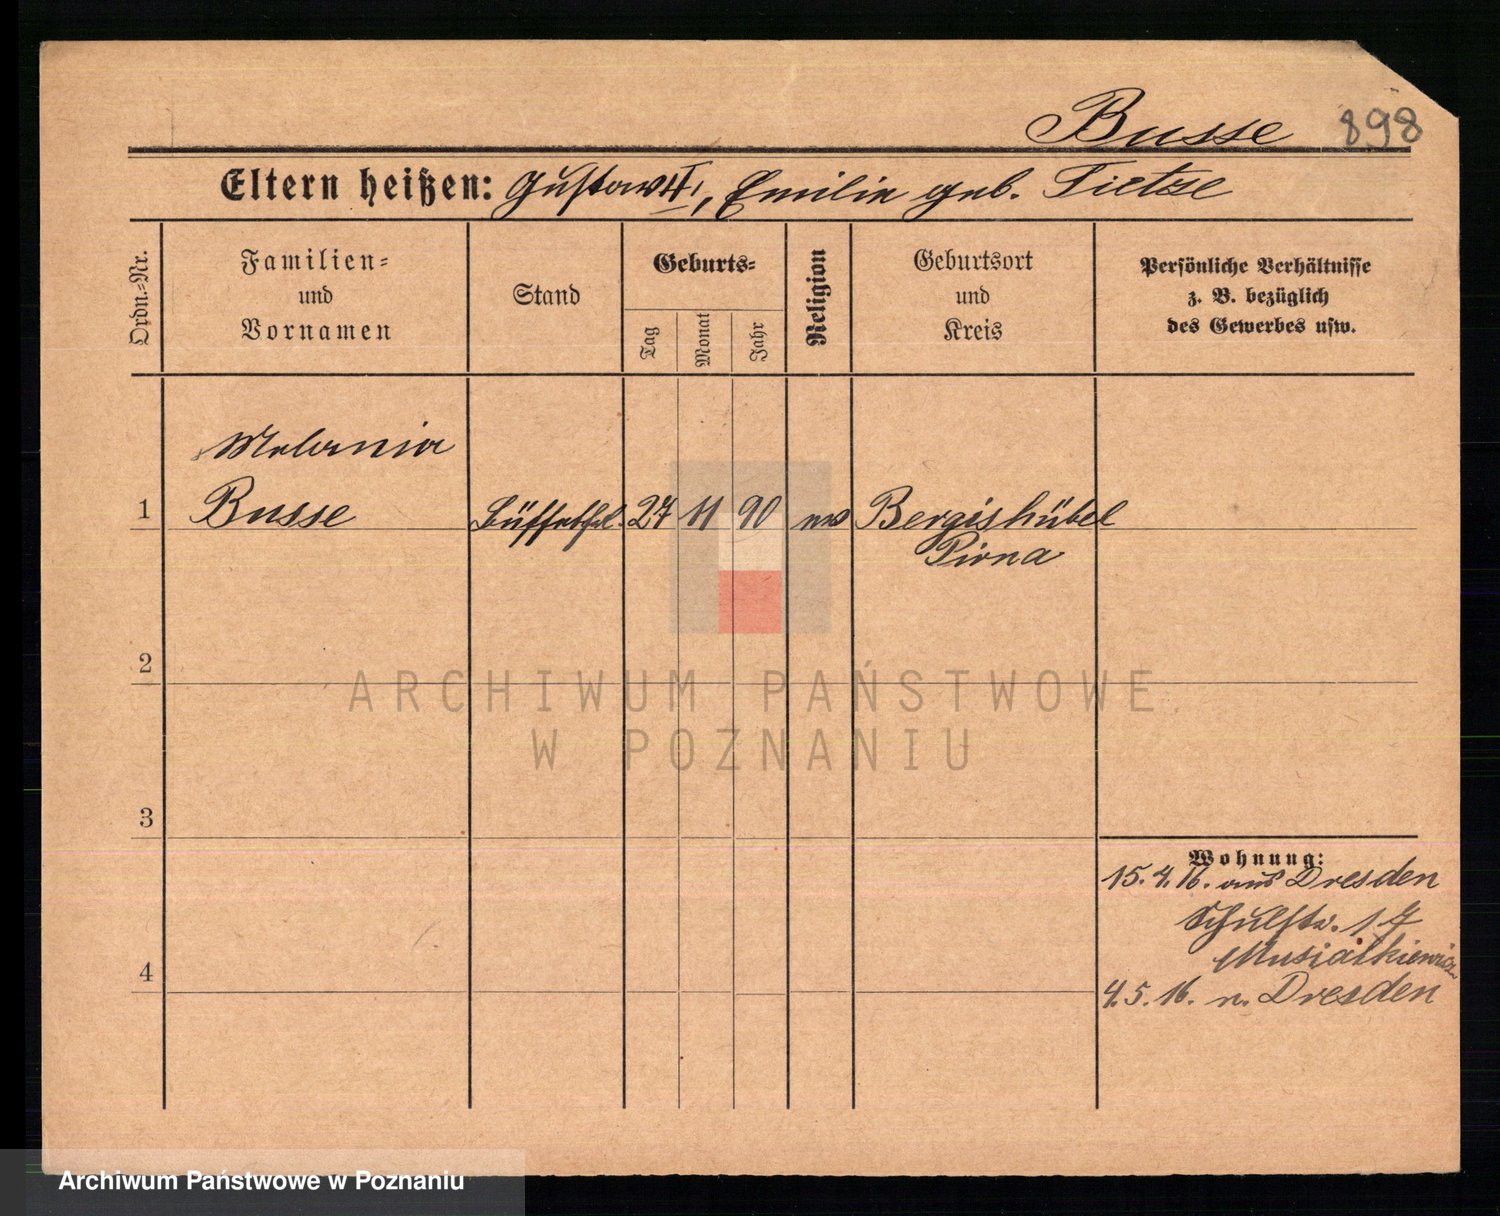 Busse 898
Eltern heißen: Gustav II, Emilie geb. Tietze
Ordn.-Nr.
Familien-
und
Vornamen
Stand
Geburts-
Tag
Monat
Jahr
Religion
Geburtsort
und
Kreis
Persönliche Verhältnisse
z. B. bezüglich
des Gewerbes usw.
Melania
1 Busse Büffetfrl. 27 11 90 ev Bergishübel
Pirna
2
ARCHIWUM PAŃSTWOWE
W POZNANIU
3
Wohnung:
15.4.16. aus Dresden
Schulstr. 17
Musiatkiewicz
4
4.5.16. n. Dresden
Archiwum Państwowe w Poznaniu